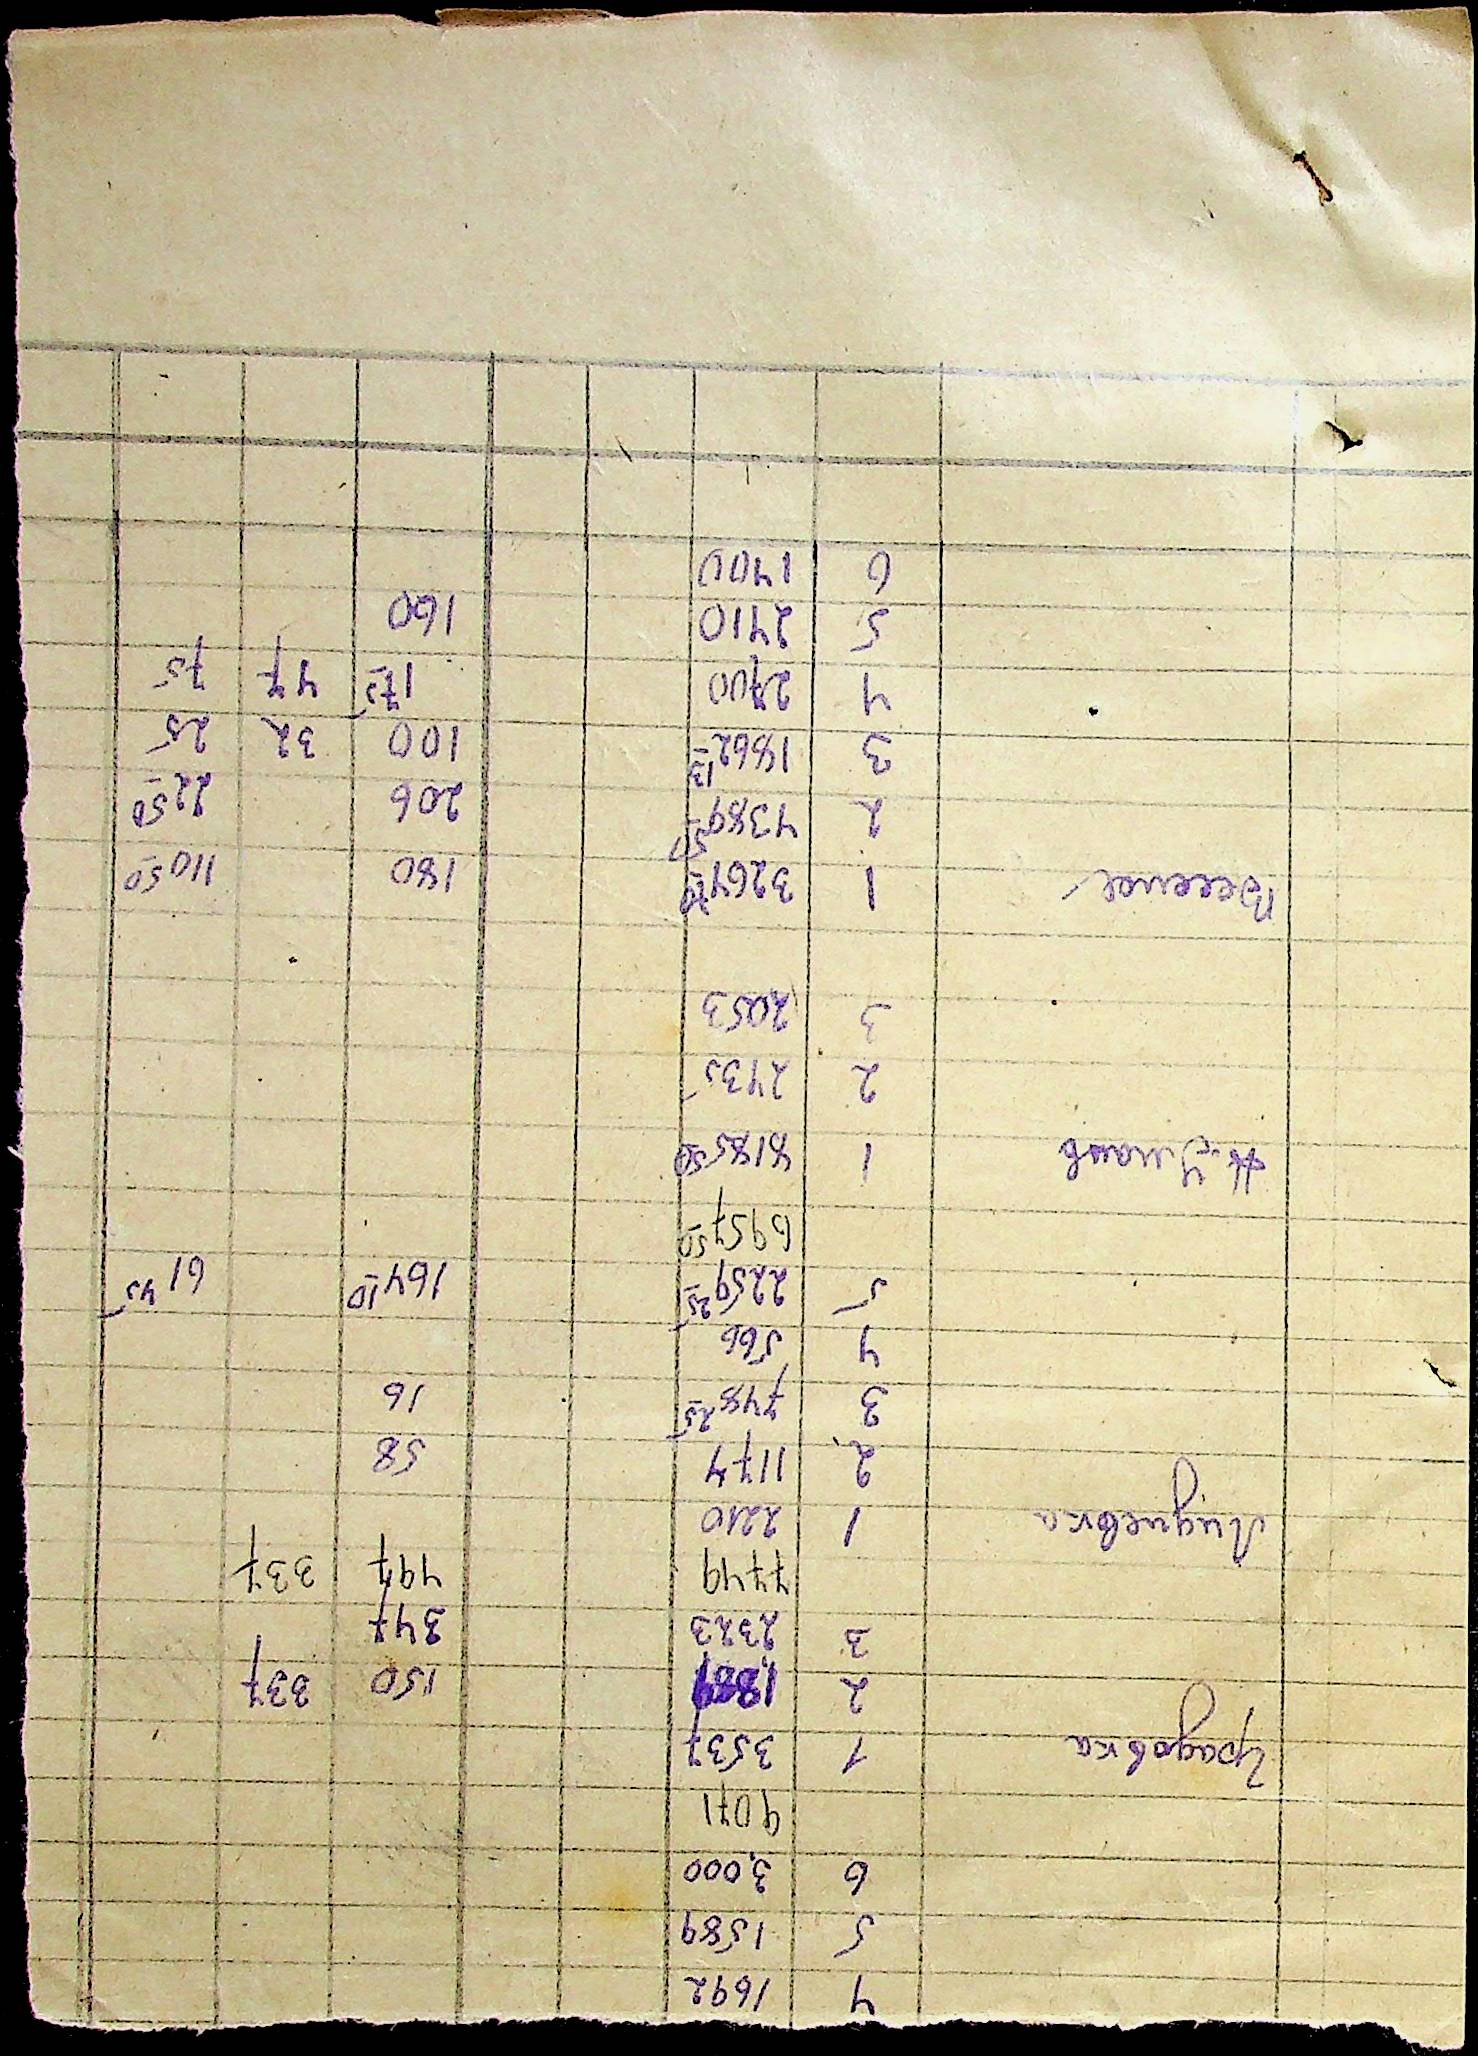 4 1692
5 1589
6 3,000
9071
Градовка 1 3537
2 1889 150 337
3 2323 347
7749 497 337
Лидиевка 1 2210
2 1174
3 748 25 16
4 566
5 2259 25 164 10 61 45
6957 50
1 8185 50
2 2435
3 2053
Веселое 1 3264 70 180 110 50
2 4389 50 206 22 50
3 1862 13 100 32 25
4 175 47 75
5 2410 160
6 1400